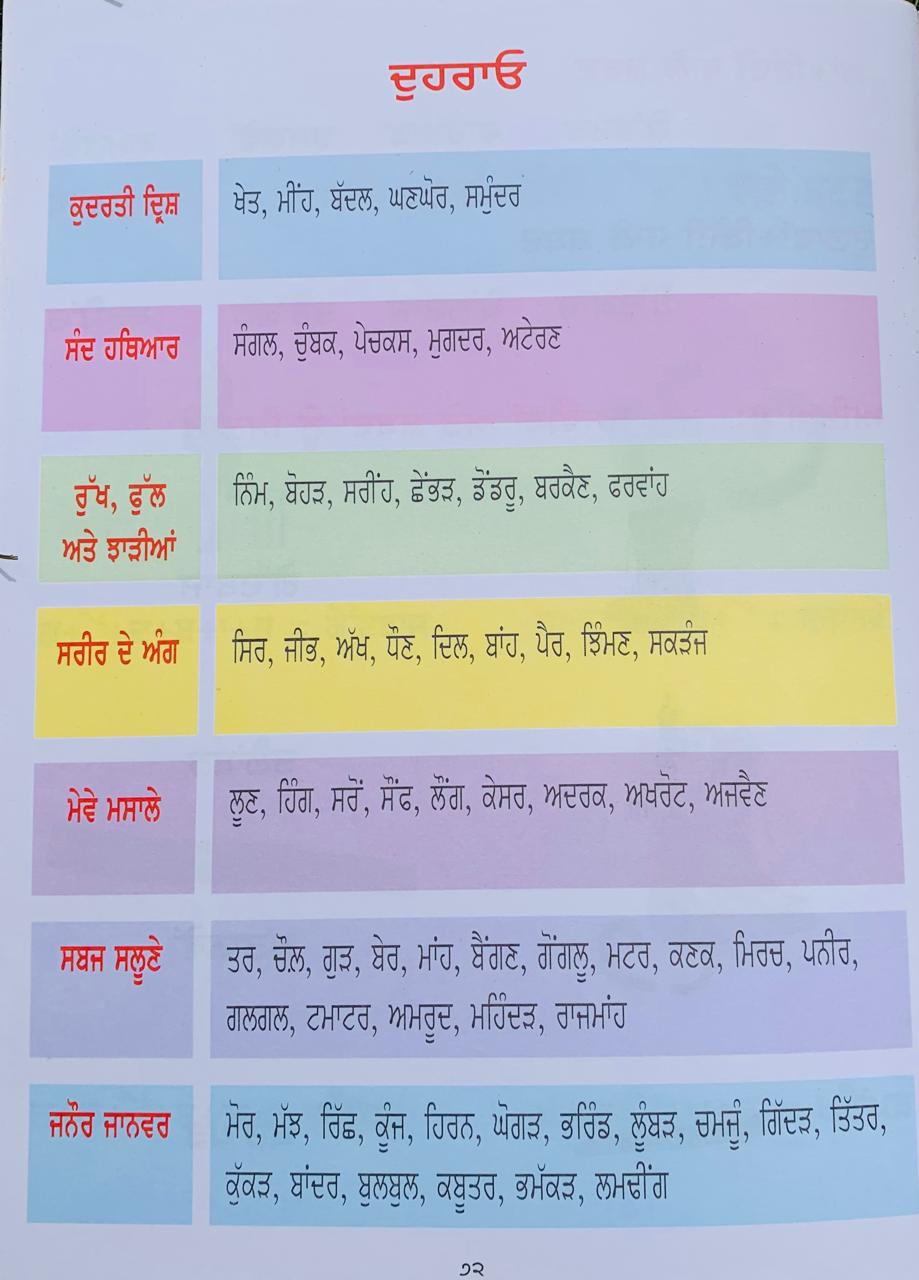 ਦੁਹਰਾਓ
ਕੁਦਰਤੀ ਦ੍ਰਿਸ਼
ਖੇਤ, ਮੀਂਹ, ਬੱਦਲ, ਘਣਘੋਰ, ਸਮੁੰਦਰ
ਸੰਦ ਹਥਿਆਰ
ਸੰਗਲ, ਚੁੰਬਕ, ਪੇਚਕਸ, ਮੁਗਦਰ, ਅਟੇਰਣ
ਰੁੱਖ, ਫੁੱਲ
ਅਤੇ ਝਾੜੀਆਂ
ਨਿੰਮ, ਬੋਹੜ, ਸਰੀਂਹ, ਛੇਂਭੜ, ਡੋਂਡਰੂ, ਬਰਕੈਣ, ਫਰਵਾਂਹ
ਸਰੀਰ ਦੇ ਅੰਗ
ਸਿਰ, ਜੀਭ, ਅੱਖ, ਧੌਣ, ਦਿਲ, ਬਾਂਹ, ਪੈਰ, ਝਿੰਮਣ, ਸਕੜੰਜ
ਮੇਵੇ ਮਸਾਲੇ
ਲੂਣ, ਹਿੰਗ, ਸਰੋਂ, ਸੌਂਫ, ਲੌਂਗ, ਕੇਸਰ, ਅਦਰਕ, ਅਖਰੋਟ, ਅਜਵੈਣ
ਸਬਜ ਸਲੂਣੇ
ਤਰ, ਚੌਲ, ਗੁੜ, ਬੇਰ, ਮਾਂਹ, ਬੈਂਗਣ, ਗੋਂਗਲੂ, ਮਟਰ, ਕਣਕ, ਮਿਰਚ, ਪਨੀਰ,
ਗਲਗਲ, ਟਮਾਟਰ, ਅਮਰੂਦ, ਮਹਿੰਦੜ, ਰਾਜਮਾਂਹ
ਜਨੌਰ ਜਾਨਵਰ
ਮੋਰ, ਮੱਝ, ਰਿੱਛ, ਕੂੰਜ, ਹਿਰਨ, ਘੋਗੜ, ਭਰਿੰਡ, ਲੂੰਬੜ, ਚਮਜੂੰ, ਗਿੱਦੜ, ਤਿੱਤਰ,
ਕੁੱਕੜ, ਬਾਂਦਰ, ਬੁਲਬੁਲ, ਕਬੂਤਰ, ਭਮੱਕੜ, ਲਮਢੀਂਗ
੭੨